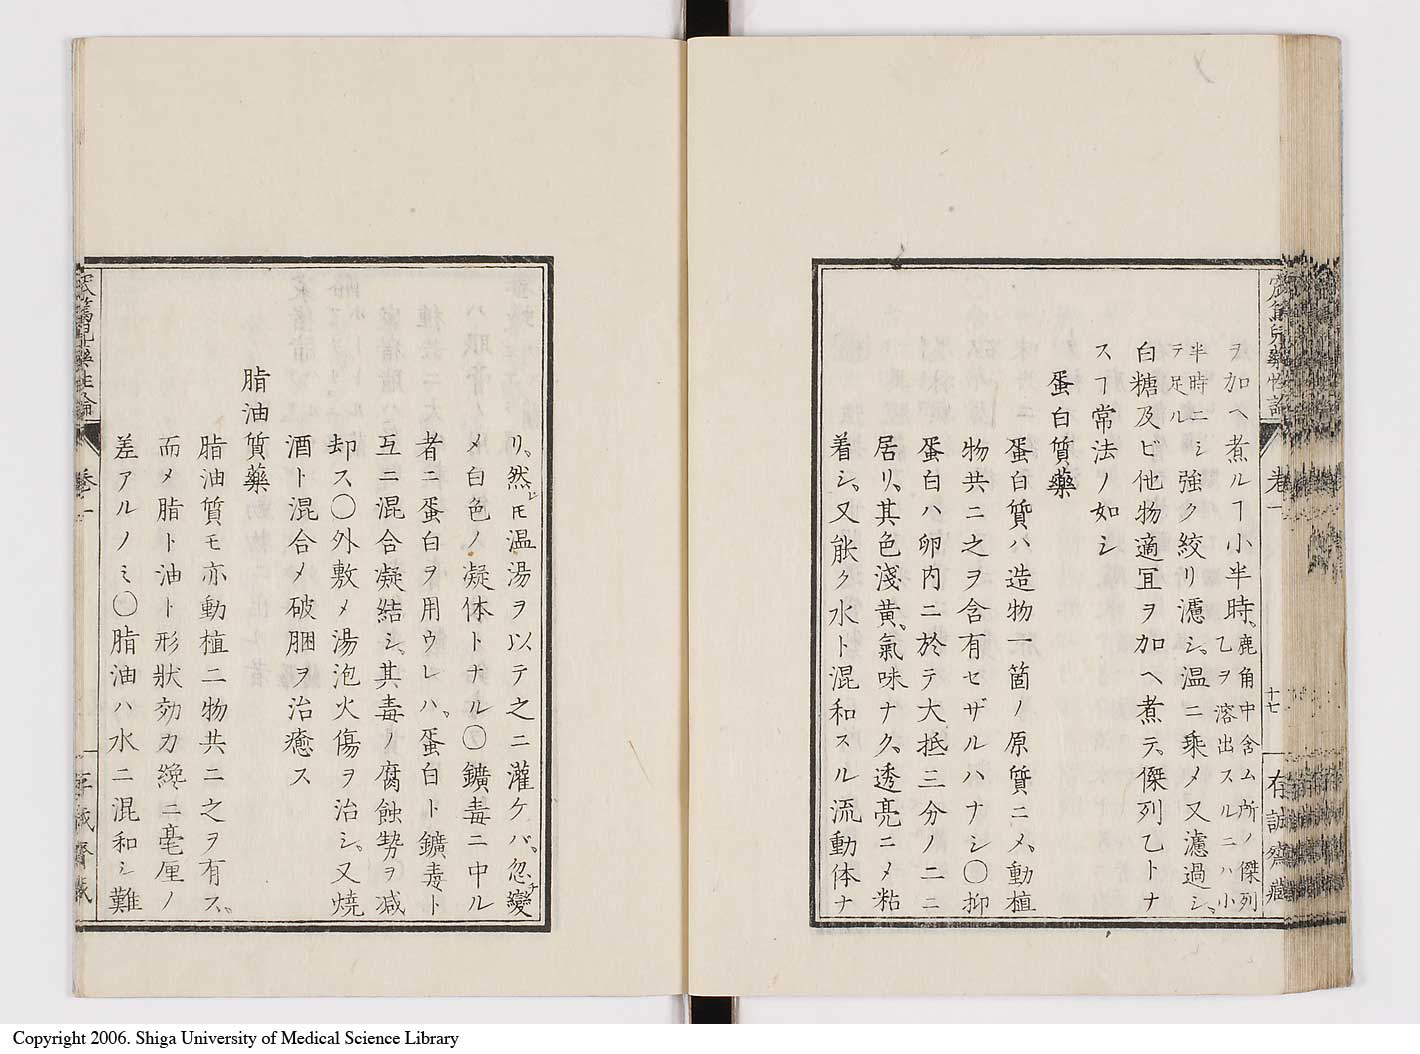 ヲ加ヘ煮ルヿ小半時、鹿角中含ム所ノ傑列
乙ヲ溶出スルニハ小
半時ニ
テ足ル
シ強ク絞リ濾シ、温ニ乘メ又濾過シ、
白糖及ビ他物適宜ヲ加ヘ煮テ、傑列乙トナ
スヿ常法ノ如シ
蛋白質藥
蛋白質ハ造物一箇ノ原質ニメ、動植
物共ニ之ヲ含有セザルハナシ〇抑
蛋白ハ卵内ニ於テ大抵三分ノ二ニ
居リ、其色淺黄、氣味ナク、透亮ニメ粘
着シ、又能ク水ト混和スル流動体ナ
卷一
十七
存誠齋藏
リ、然レ𪜈温湯ヲ以テ之ニ灌ケバ、忽チ變
メ白色ノ凝体トナル〇鑛毒ニ中ル
者ニ蛋白ヲ用ウレハ、蛋白ト鑛毒ト
互ニ混合凝結シ、其毒ノ腐蝕勢ヲ减
却ス〇外敷メ湯泡火傷ヲ治シ、又燒
酒ト混合メ破胭ヲ治癒ス
脂油質藥
脂油質モ亦動植二物共ニ之ヲ有ス、
而メ脂ト油ト形狀効力纔ニ毫厘ノ
差アルノミ〇脂油ハ水ニ混和シ難
卷一